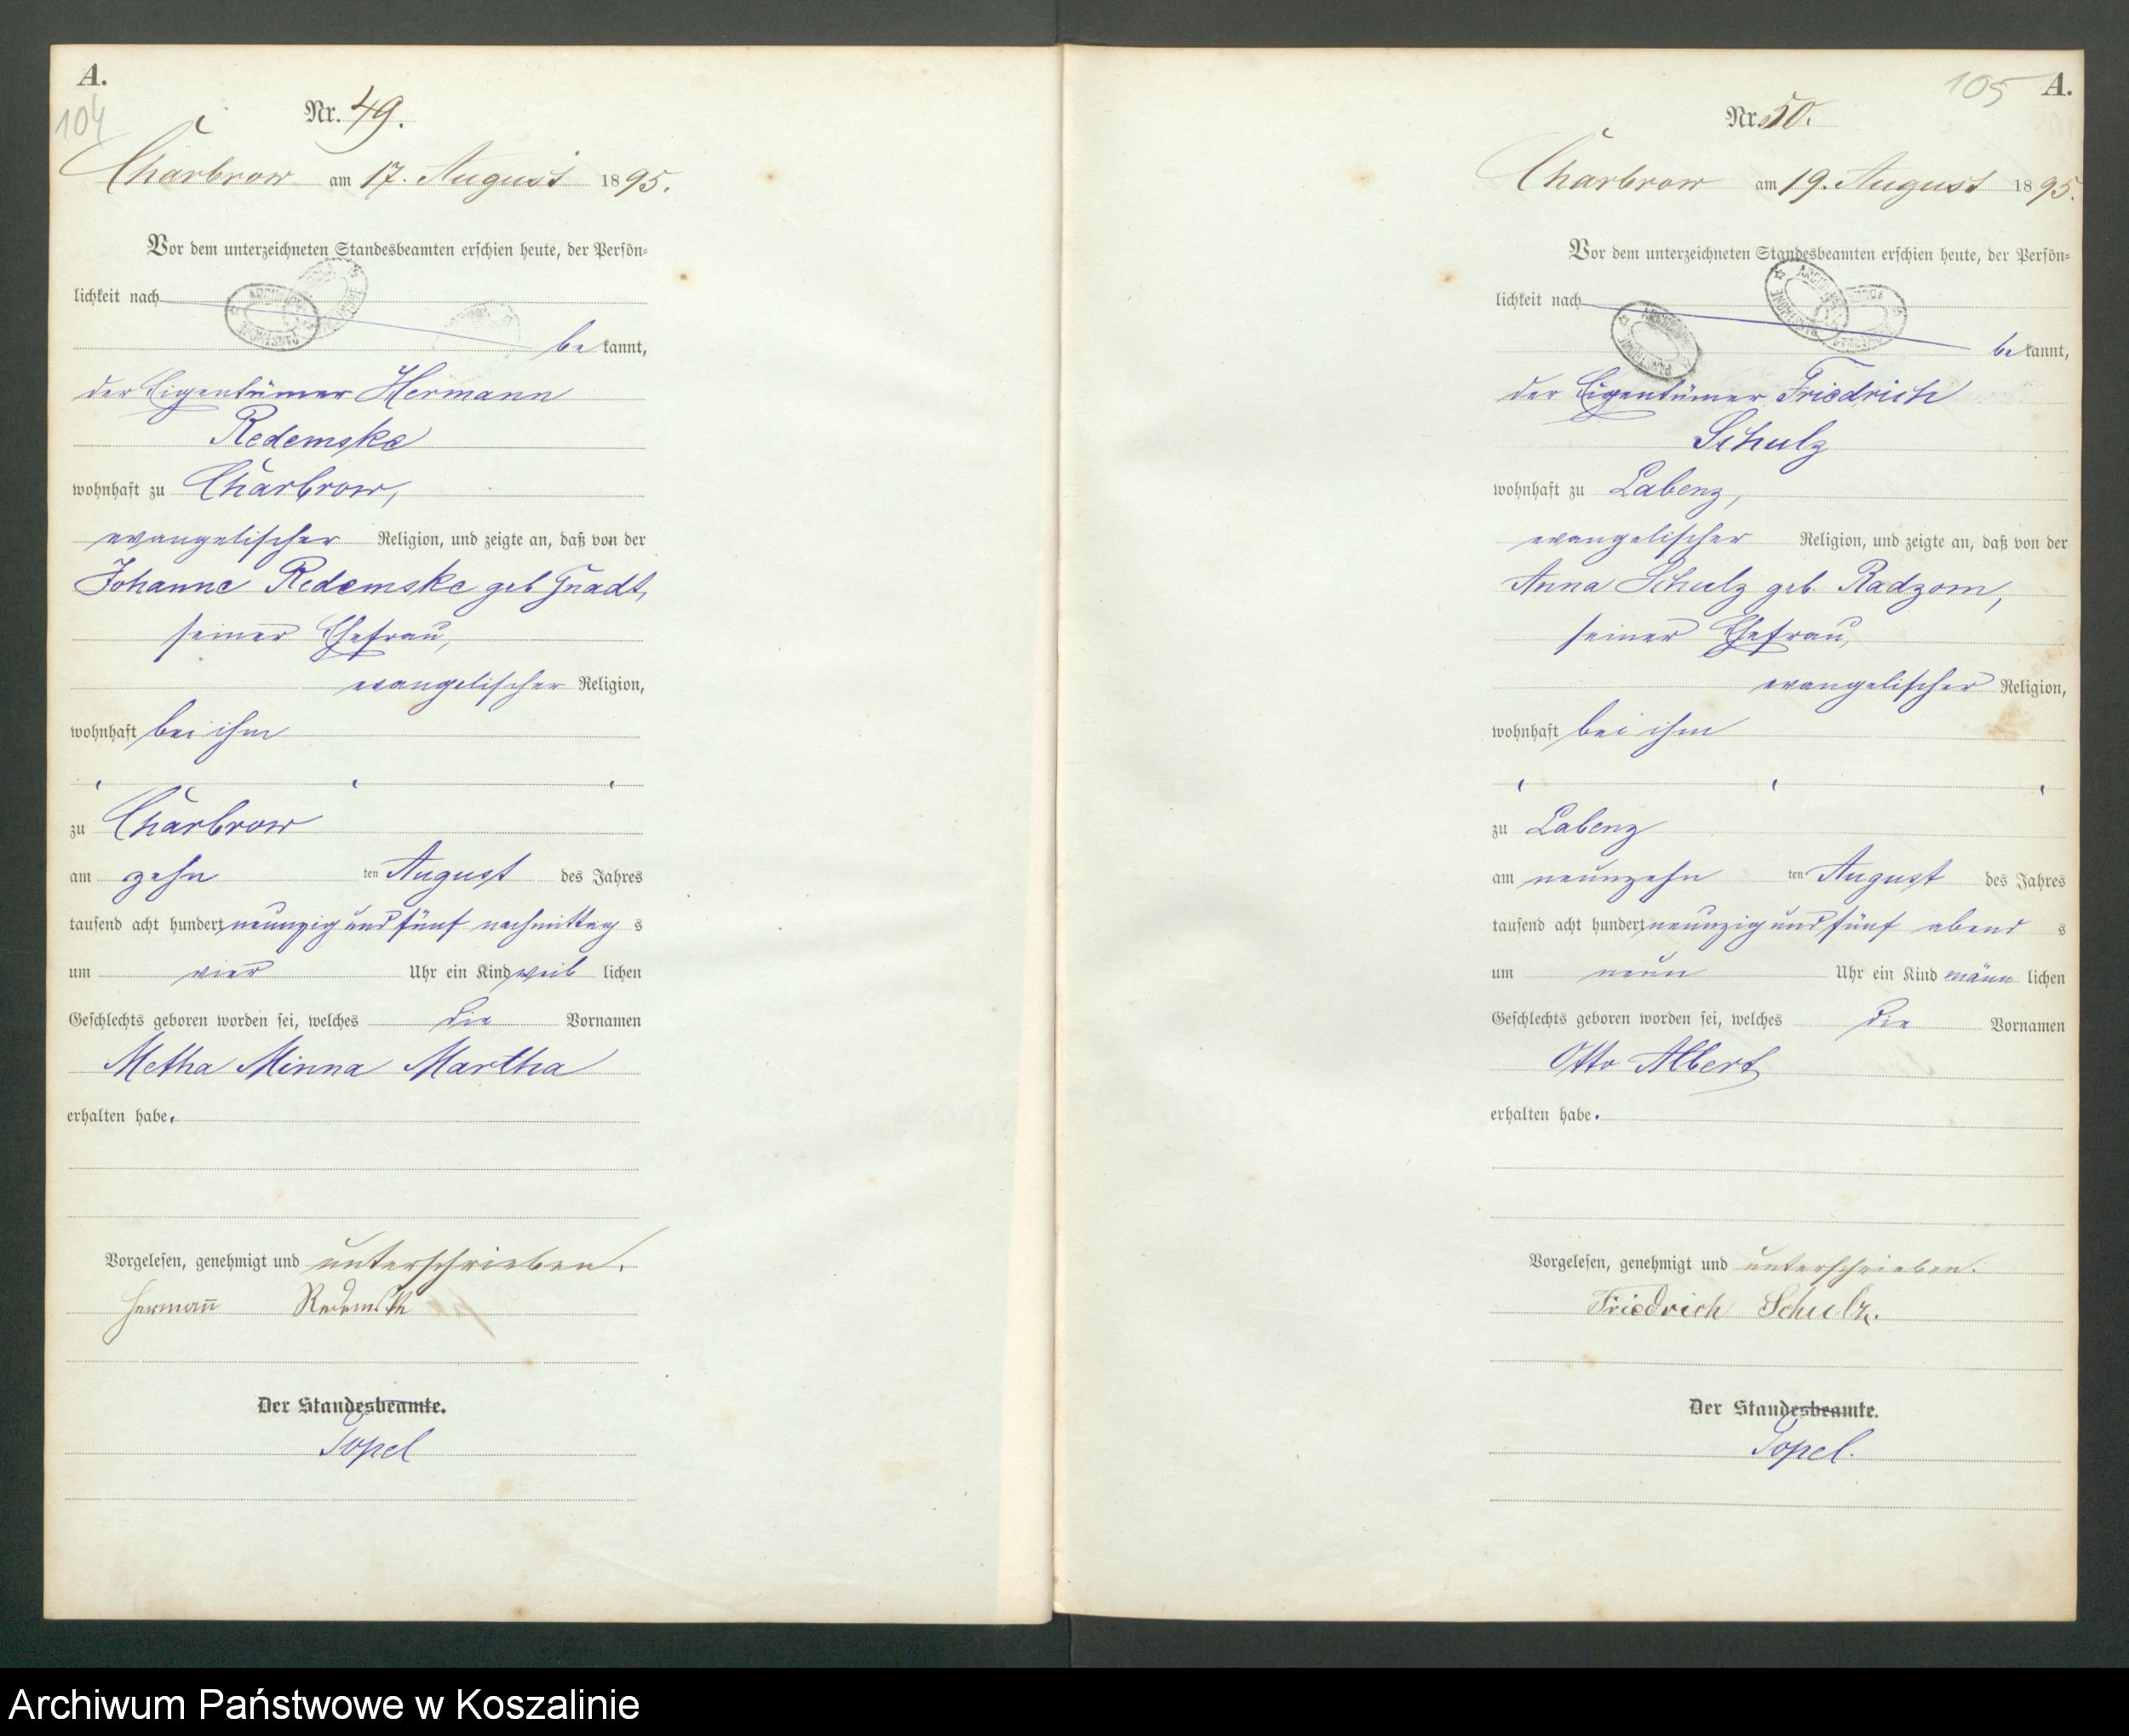 A.
104
Nr. 49.
Charbrow am 17. August 1895.
Vor dem unterzeichneten Standesbeamten erschien heute, der Persön-
lichkeit nach
be kannt,
der Eigentümer Hermann
Redemske
wohnhaft zu Charbrow,
evangelischer Religion, und zeigte an, daß von der
Johanne Redemske geb Gnadt,
seiner Ehefrau,
evangelischer Religion,
wohnhaft bei ihm
zu Charbrow
am zehn ten August des Jahres
tausend acht hundert neunzig und fünf nachmittag s
um vier Uhr ein Kind weib lichen
Geschlechts geboren worden sei, welches die Vornamen
Metha Minna Martha
erhalten habe.
Vorgelesen, genehmigt und unterschrieben.
Hermañ Redemske
Der Standesbeamte.
Topel
105 A.
Nr. 50.
Charbrow am 19. August 1895.
Vor dem unterzeichneten Standesbeamten erschien heute, der Persön-
lichkeit nach
be kannt,
der Eigentümer Friedrich
Schulz
wohnhaft zu Labenz,
evangelischer Religion, und zeigte an, daß von der
Anna Schulz geb. Radzom,
seiner Ehefrau,
evangelischer Religion,
wohnhaft bei ihm
zu Labenz
am neunzehn ten August des Jahres
tausend acht hundert neunzig und fünf abend s
um neun Uhr ein Kind männ lichen
Geschlechts geboren worden sei, welches die Vornamen
Otto Albert
erhalten habe.
Vorgelesen, genehmigt und unterschrieben.
Friedrich Schulz.
Der Standesbeamte.
Topel.
Archiwum Państwowe w Koszalinie